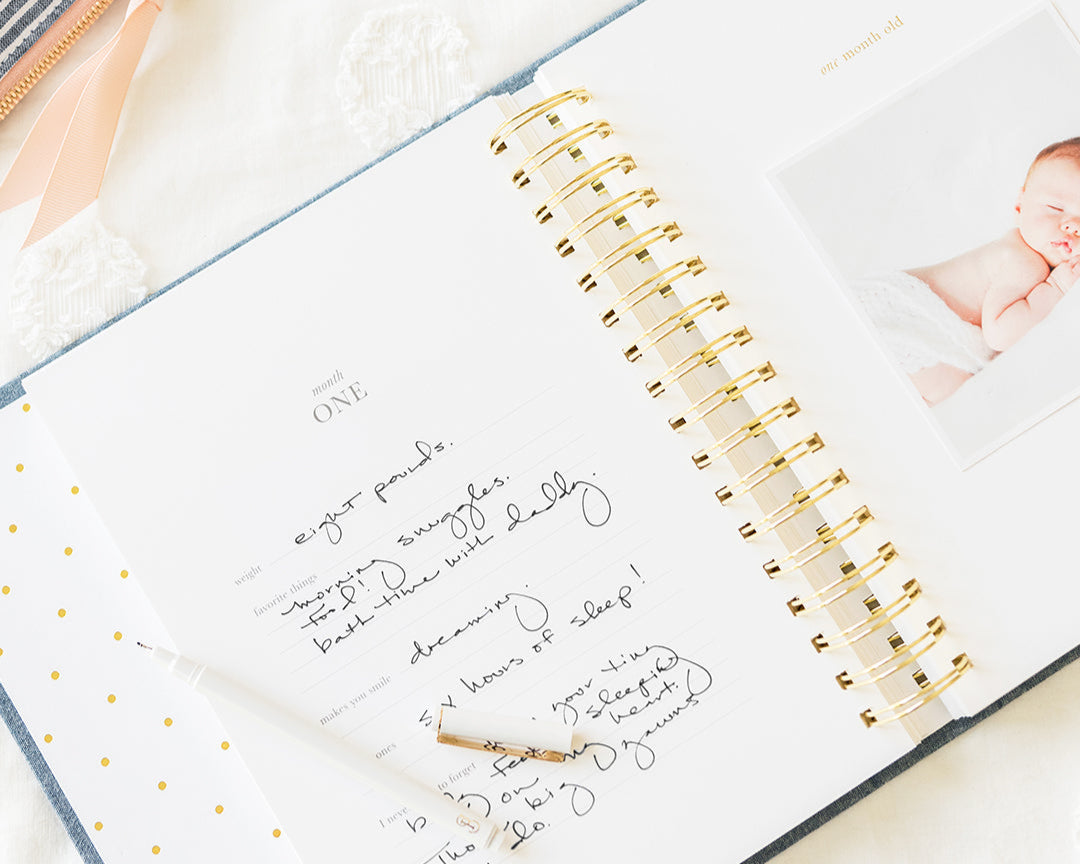 month
ONE
weight eight pounds.
favorite things morning snuggles.
food!
bath time with daddy.
makes you smile dreaming.
ones six hours of sleep!
I never to forget your tiny
feet sleeping
on my heart.
big yawns
do.
one month old